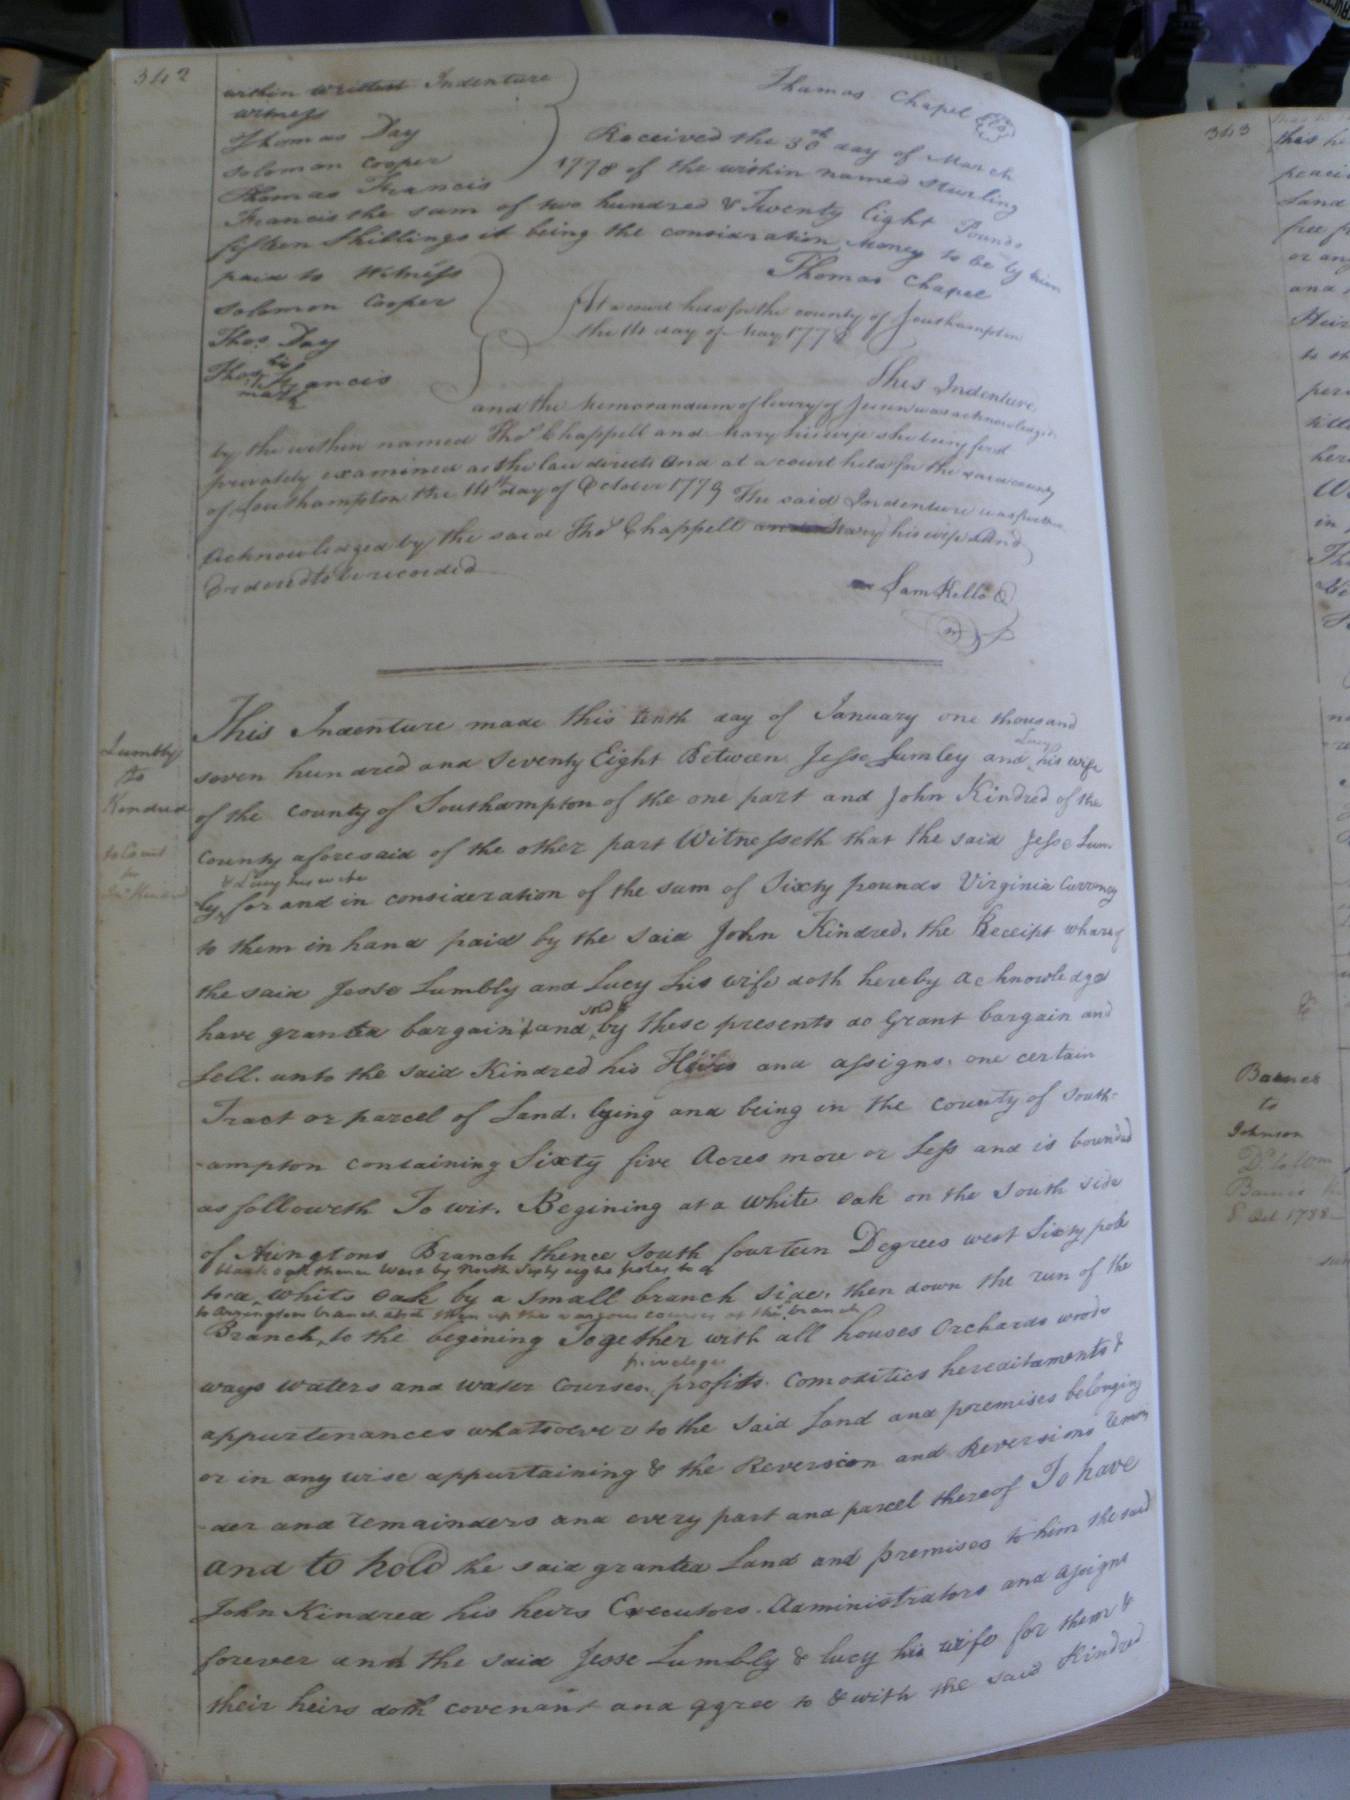 342
within written Indenture
witness
Thomas Day
Solomon Cooper
Thomas Francis
Thomas Chapel
Received the 30th day of March
1778 of the within named Sturling
Francis the sum of two hundred & Twenty Eight Pounds
fifteen Shillings it being the consideration Money to be by him
paid to Witness
Solomon Cooper
Thos. Day
Thos. his Francis
mark
Thomas Chapel
At a court held for the county of Southampton
the 14 day of May 1778
This Indenture
and the memorandum of livery of Seisin was acknowledged
by the within named Thos. Chappell and Mary his wife she being first
privately examined as the law directs And at a court held for the said county
of Southampton the 14th day of October 1779 The said Indenture was further
Acknowledged by the said Thos. Chappell Mary his wife And
Ordered to be recorded
Sam Kello
Lumbly
to
Kindred
This Indenture made this tenth day of January one thousand
seven hundred and Seventy Eight Between Jesse Lumley and Lucy his wife
of the County of Southampton of the one part and John Kindred of the
County aforesaid of the other part Witnesseth that the said Jesse Lum-
& Lucy his wife
ly, for and in consideration of the sum of Sixty pounds Virginia Currency
to them in hand paid by the said John Kindred, the Receipt whereof
the said Jesse Lumbly and Lucy his wife doth hereby acknowledge
have granted bargain'd and sold & by these presents do Grant bargain and
Sell. unto the said Kindred his Heirs and assigns. one certain
Tract or parcel of Land. lying and being in the County of South-
-ampton containing Sixty five Acres more or Less and is bounded
as followeth To wit. Begining at a white oak on the South side
of Aringtons Branch thence South fourteen Degrees west Sixty pole
black oak thence West by North Sixty eight poles to a
to a white oak by a Small branch side, then down the run of the
to Arringtons branch and then up the various courses of the branch
Branch, to the begining Together with all houses Orchards woods
privelege
ways waters and water courses, profits. Comodities hereditaments &
appurtenances whatsoever to the said Land and premises belonging
or in any wise appurtaining & the Reversion and Reversions Remain
-der and remainders and every part and parcel thereof To have
and to hold the said granted Land and premises to him the said
John Kindred his heirs Executors. Administrators and assigns
forever and the said Jesse Lumbly & lucy his wife for them &
their heirs doth covenant and agree to & with the said Kindred
343
Barnes
to
Johnson